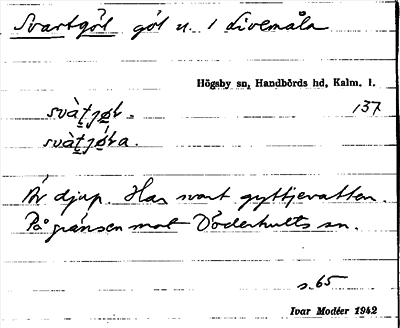 Svartgöl göl u. 1 Livemåla
Högsby sn, Handbörds hd, Kalm. l.
svàtjøḷ. 137
svàtjøḷa.
Är djup. Har svart gyttjevatten.
På gränsen mot Döderhults sn.
s. 65
Ivar Modéer 1942